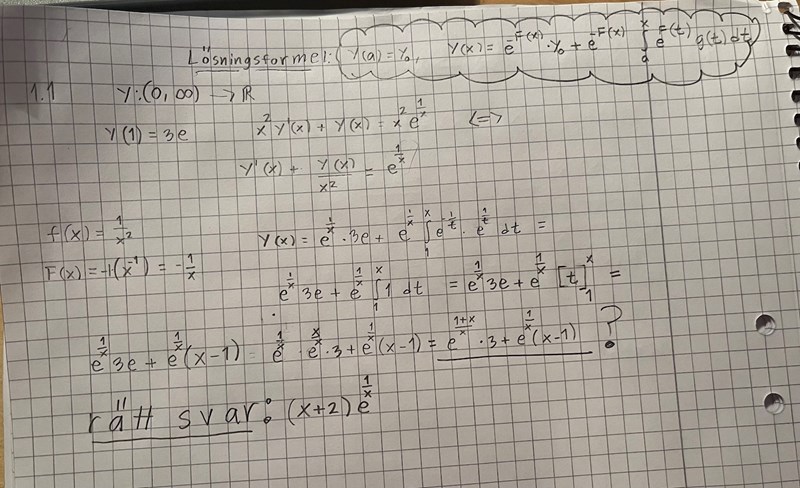 Lösningsformel: y(a) = y₀, y(x) = e^{-F(x)} · y₀ + e^{-F(x)} ∫_a^x e^{F(t)} g(t) dt
1.1 y:(0, ∞) → ℝ
y(1) = 3e x² y'(x) + y(x) = x² e^{1/x} <=>
y'(x) + y(x)/x² = e^{1/x}
f(x) = 1/x² y(x) = e^{1/x} · 3e + e^{1/x} ∫_1^x e^{-1/t} · e^{1/t} dt =
F(x) = -1(x^{-1}) = -1/x
e^{1/x} 3e + e^{1/x} ∫_1^x 1 dt = e^{1/x} 3e + e^{1/x} [t]_1^x =
e^{1/x} 3e + e^{1/x}(x-1) = e^{1/x} · e^{x/x} · 3 + e^{1/x}(x-1) = e^{(1+x)/x} · 3 + e^{1/x}(x-1) ?
rätt svar: (x+2) e^{1/x}